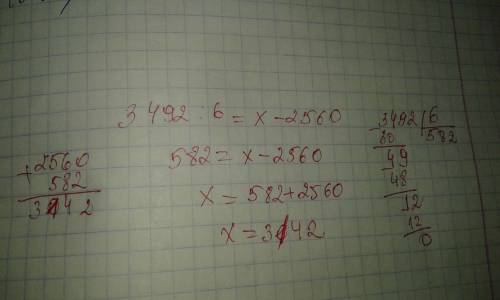 3492 : 6 = x - 2560
582 = x - 2560
x = 582 + 2560
x = 3142
+ 2560
582
3142
- 3492 | 6
30 582
- 49
48
- 12
12
0